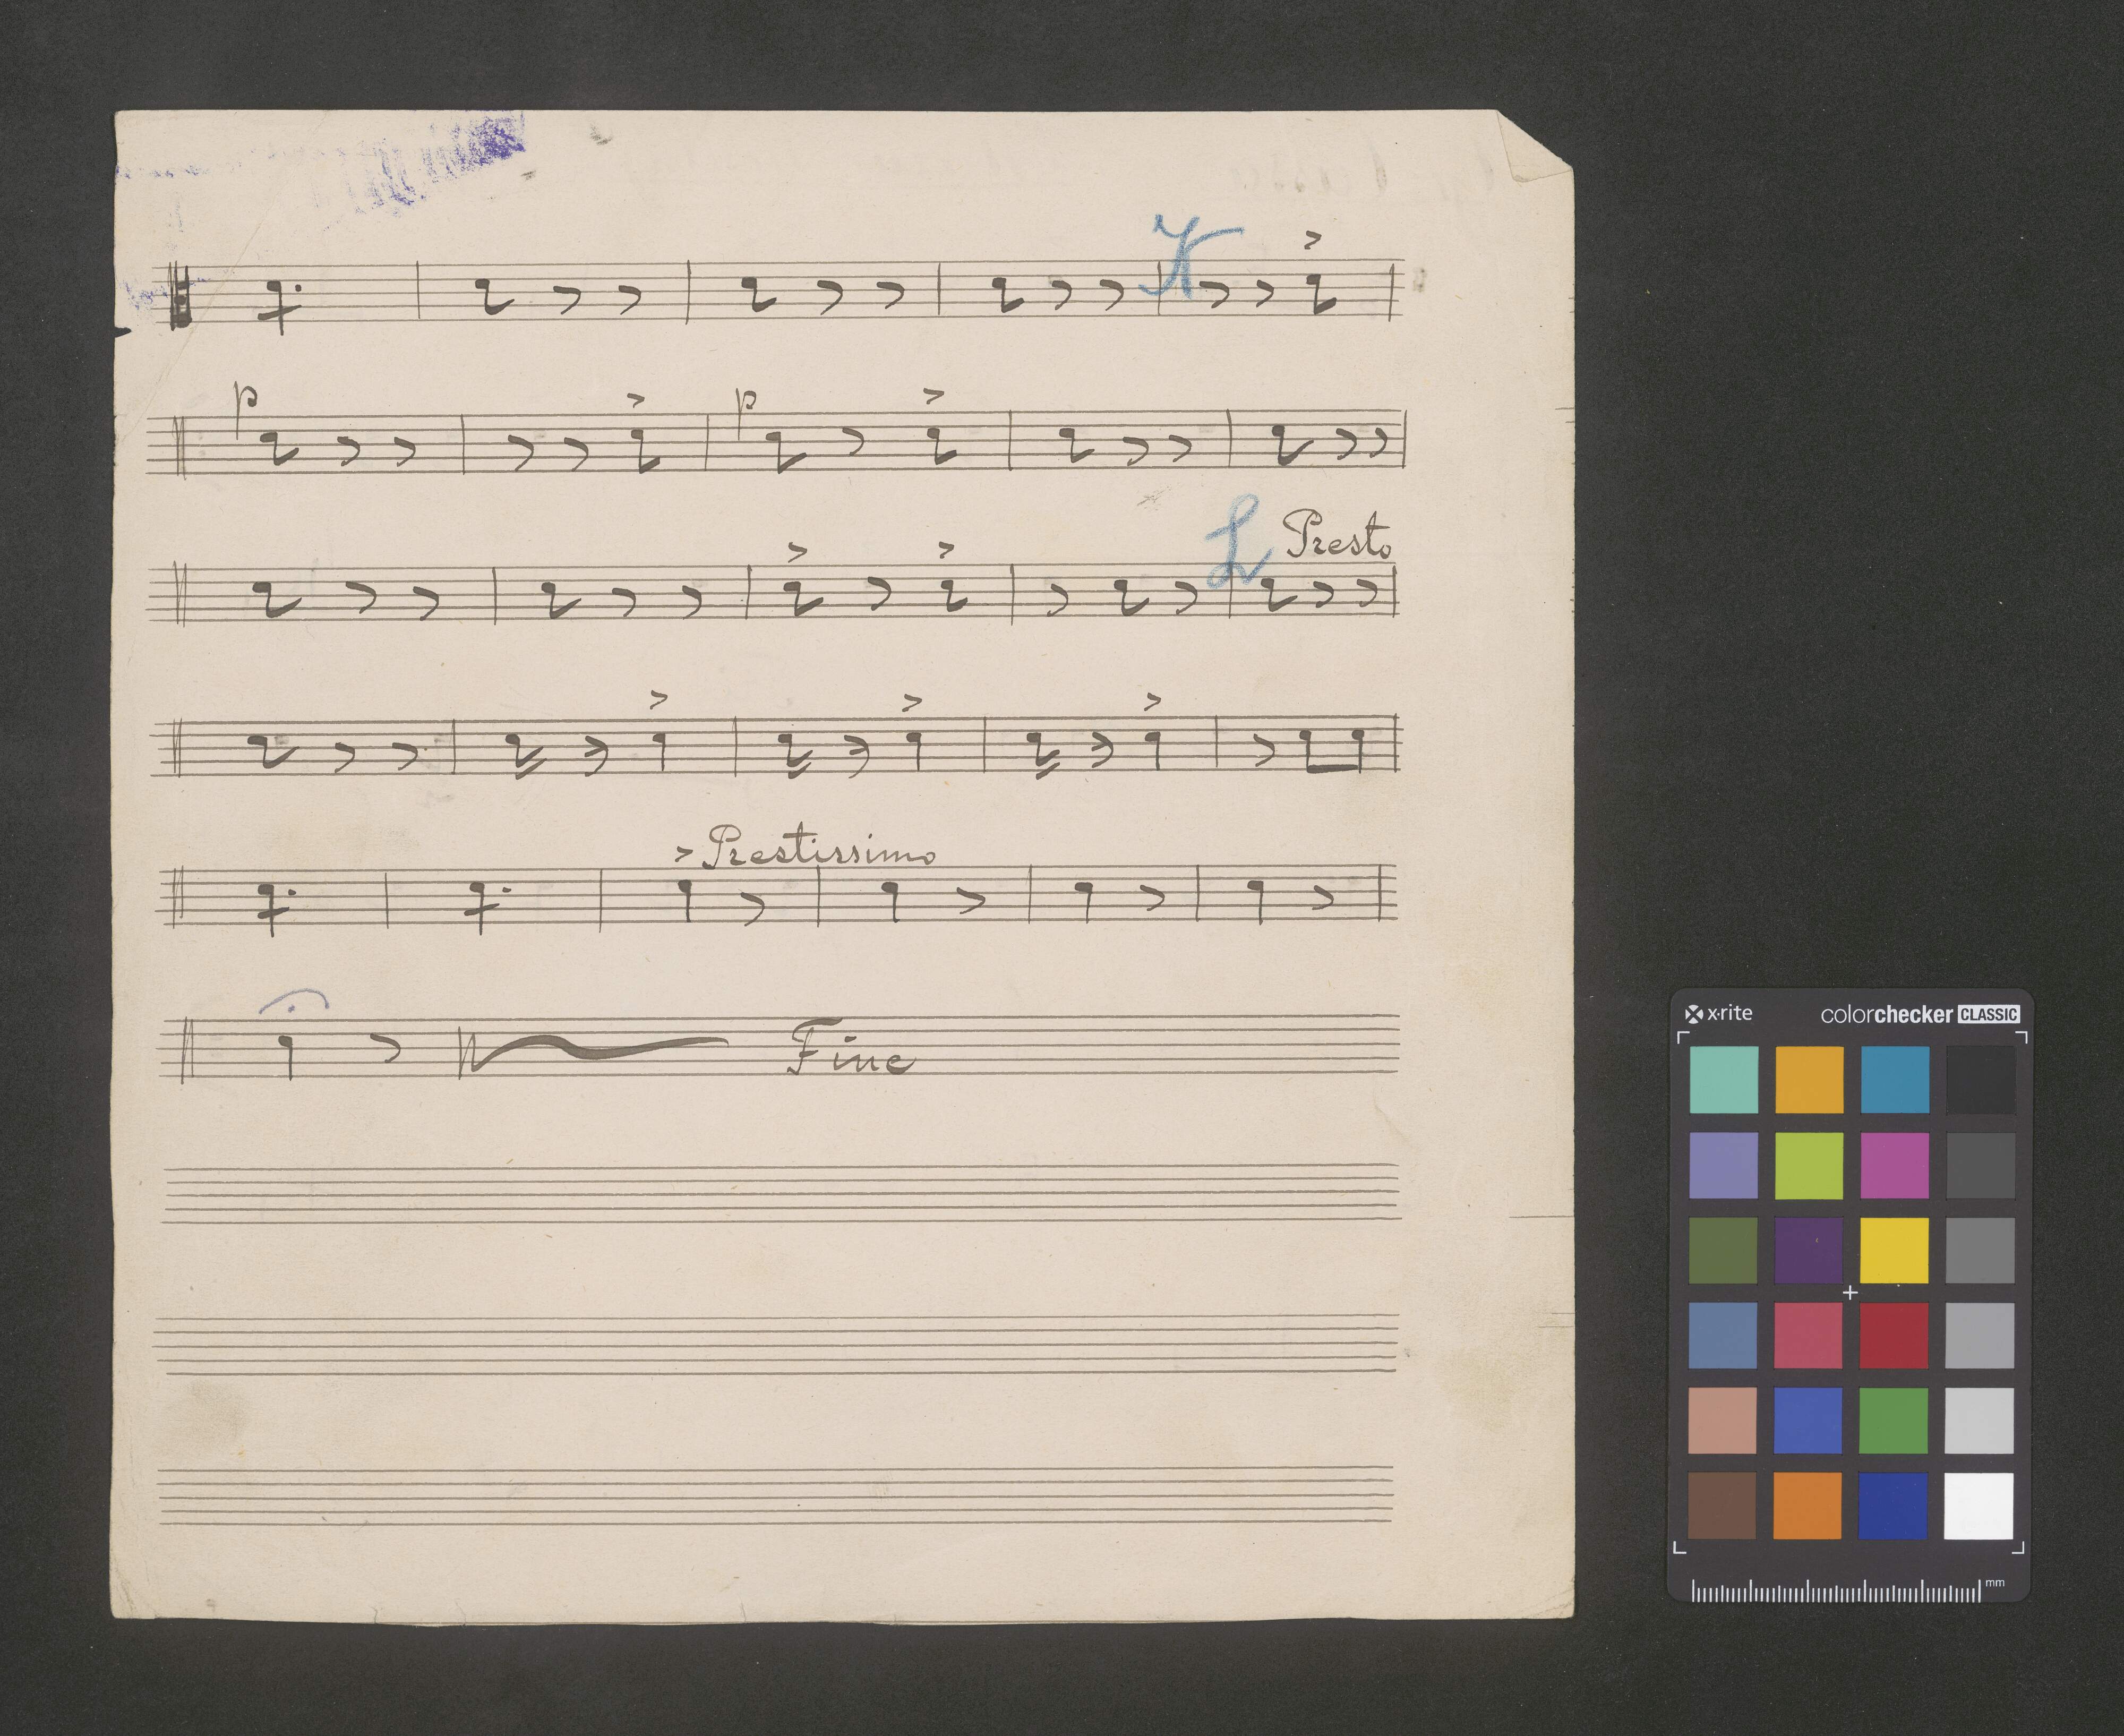 K
p p
L Presto
Prestissimo
Fine
x·rite colorchecker CLASSIC
mm